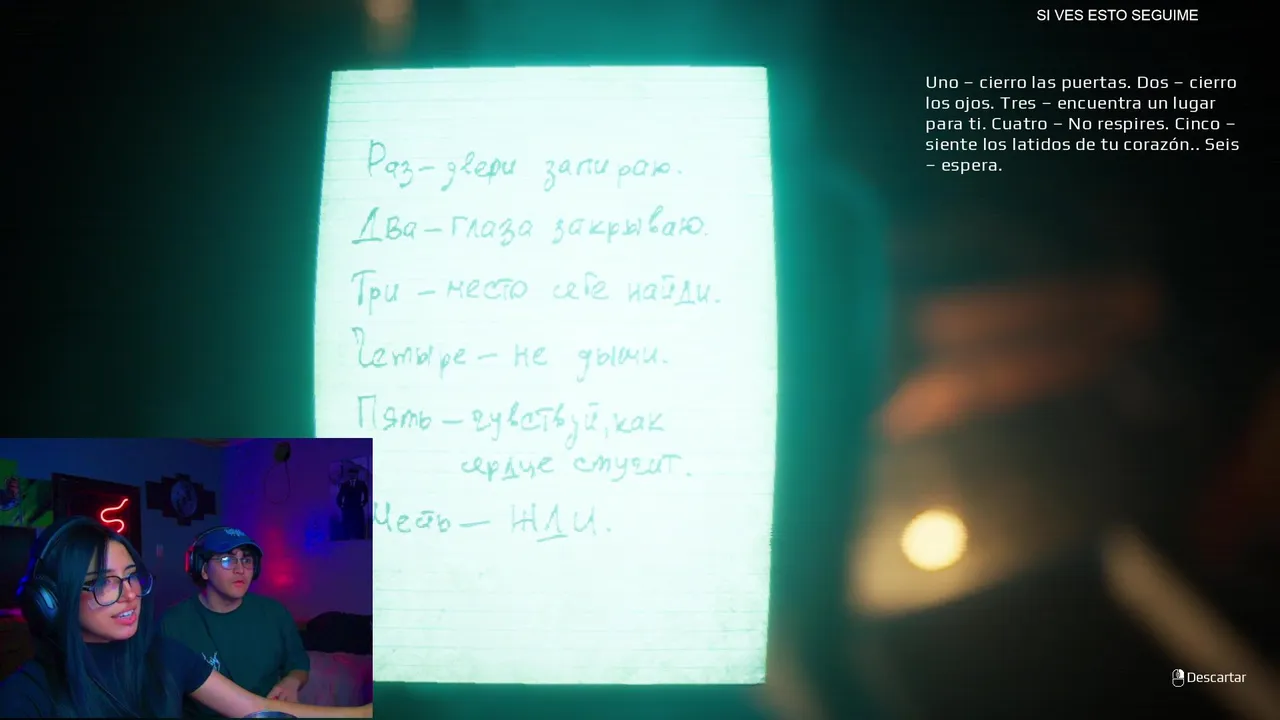 SI VES ESTO SEGUIME
Uno – cierro las puertas. Dos – cierro
los ojos. Tres – encuentra un lugar
para ti. Cuatro – No respires. Cinco –
siente los latidos de tu corazón.. Seis
– espera.
Раз – двери запираю.
Два – глаза закрываю.
Три – место себе найди.
Четыре – не дыши.
Пять – чувствуй, как
сердце стучит.
Шесть – ЖДИ.
Descartar